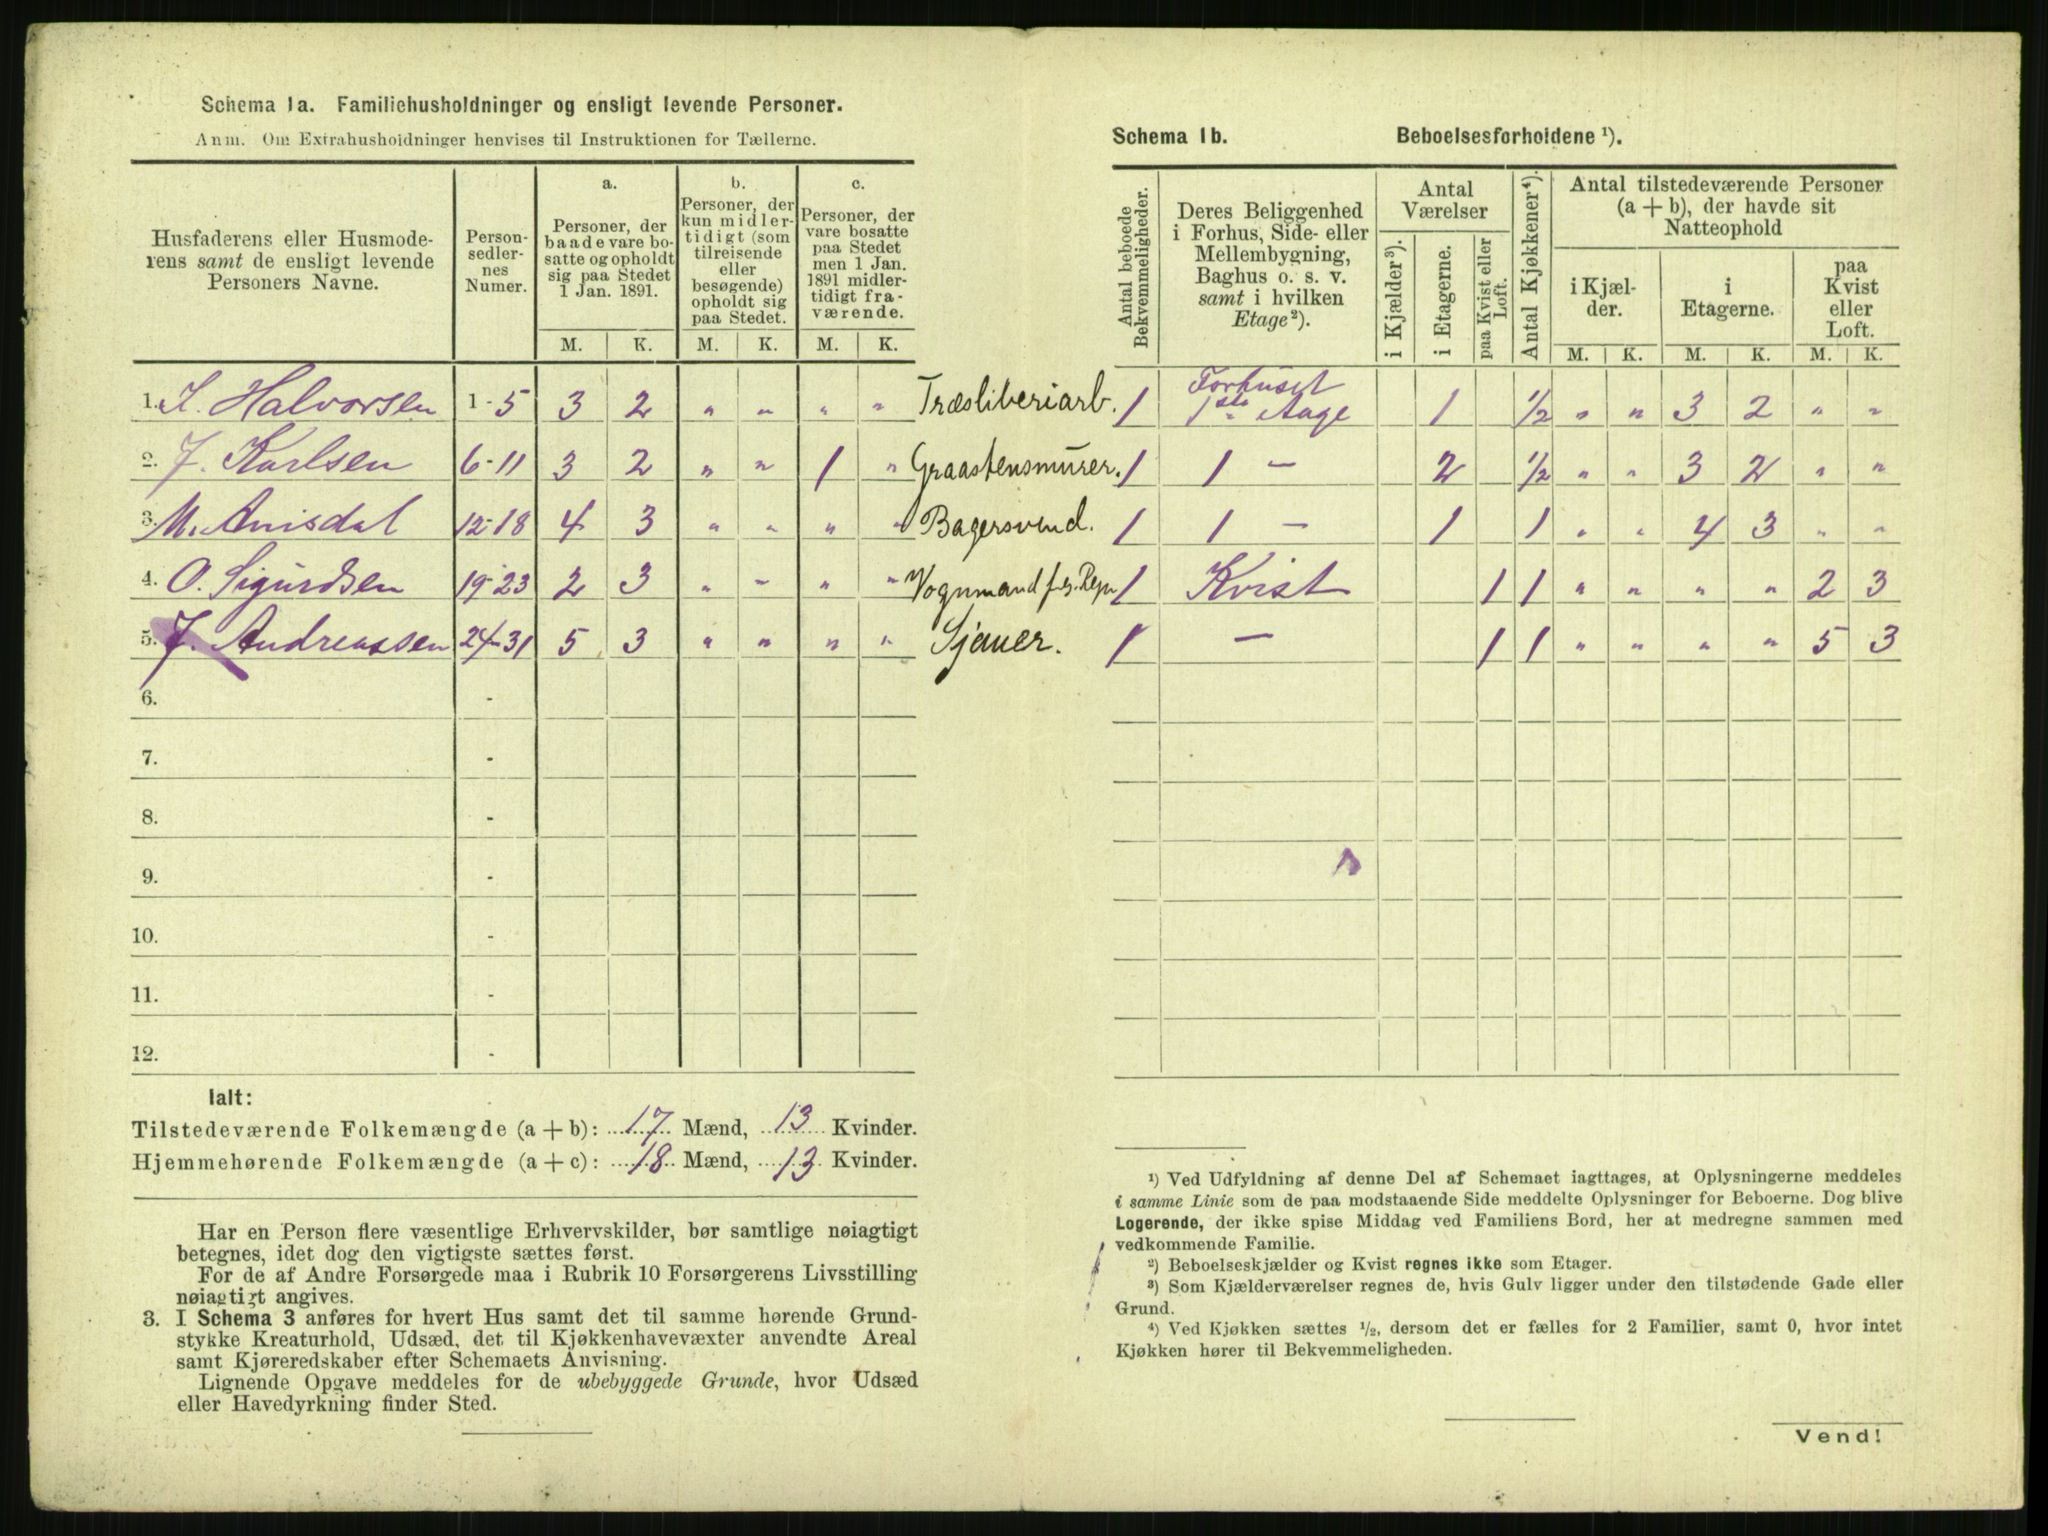 Schema 1a. Familiehusholdninger og ensligt levende Personer.
Anm. Om Extrahusholdninger henvises til Instruktionen for Tællerne.
Husfaderens eller Husmoderens samt de ensligt levende Personers Navne.
Personsedlernes Numer.
a.
Personer, der baade vare bosatte og opholdt sig paa Stedet 1 Jan. 1891.
b.
Personer, der kun midlertidigt (som tilreisende eller besøgende) opholdt sig paa Stedet.
c.
Personer, der vare bosatte paa Stedet men 1 Jan. 1891 midlertidigt fraværende.
M. K. M. K. M. K.
1. Halvorsen 1-5 3 2 " " " " Træsliberiarb.
2. J. Karlsen 6-11 3 2 " " 1 " Graastensmurer.
3. M. Anisdal 12-18 4 3 " " " " Bagersvend.
4. O. Sigurdsen 19-23 2 3 " " " " Vognmand
5. J. Andreassen 24-31 5 3 " " " " Sjauer.
6. -
7. -
8. -
9. -
10. -
11. -
12. -
Ialt:
Tilstedeværende Folkemængde (a + b): 17 Mænd, 13 Kvinder.
Hjemmehørende Folkemængde (a + c): 18 Mænd, 13 Kvinder.
Har en Person flere væsentlige Erhvervskilder, bør samtlige nøiagtigt
betegnes, idet dog den vigtigste sættes først.
For de af Andre Forsørgede maa i Rubrik 10 Forsørgerens Livsstilling
nøiagtigt angives.
3. I Schema 3 anføres for hvert Hus samt det til samme hørende Grund-
stykke Kreaturhold, Udsæd, det til Kjøkkenhavevæxter anvendte Areal
samt Kjøreredskaber efter Schemaets Anvisning.
Lignende Opgave meddeles for de ubebyggede Grunde, hvor Udsæd
eller Havedyrkning finder Sted.
Schema 1b. Beboelsesforholdene ¹).
Antal beboede Bekvemmeligheder.
Deres Beliggenhed i Forhus, Side- eller Mellembygning, Baghus o. s. v. samt i hvilken Etage²).
Antal Værelser
i Kjælder³).
i Etagerne.
paa Kvist eller Loft.
Antal Kjøkkener⁴).
Antal tilstedeværende Personer (a + b), der havde sit Natteophold
i Kjælder.
i Etagerne.
paa Kvist eller Loft.
M. K. M. K. M. K.
1 Forhuset 1ste Aage 1 1/2 " " 3 2 " "
1 1 — 2 1/2 " " 3 2 " "
1 1 — 1 1 " " 4 3 " "
1 Kvist 1 1 " " " " 2 3
1 — 1 1 " " " " 5 3
¹) Ved Udfyldning af denne Del af Schemaet iagttages, at Oplysningerne meddeles
i samme Linie som de paa modstaaende Side meddelte Oplysninger for Beboerne. Dog blive
Logerende, der ikke spise Middag ved Familiens Bord, her at medregne sammen med
vedkommende Familie.
²) Beboelseskjælder og Kvist regnes ikke som Etager.
³) Som Kjælderværelser regnes de, hvis Gulv ligger under den tilstødende Gade eller
Grund.
⁴) Ved Kjøkken sættes ½, dersom det er fælles for 2 Familier, samt 0, hvor intet
Kjøkken hører til Bekvemmeligheden.
Vend!